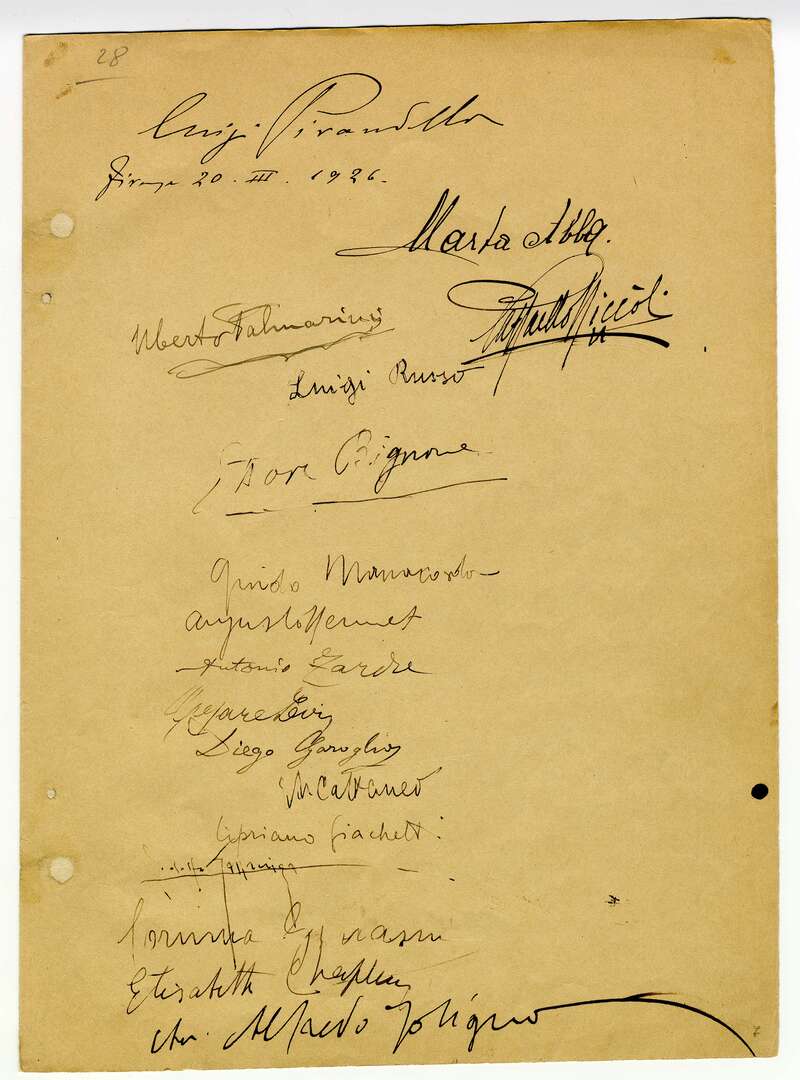 28
Luigi Pirandello
Firenze 20. III. 1926.
Marta Abba.
Uberto Palmarini
Niccòli
Luigi Russo
Ettore Bignone
Guido Manacorda
Augusto Hermet
Antonio Zardo
Cesare Levi
Diego Garoglio
M Cattaneo
Cipriano Giachetti
Corinna
Elisabeth Chaplin
Alfredo Foligno